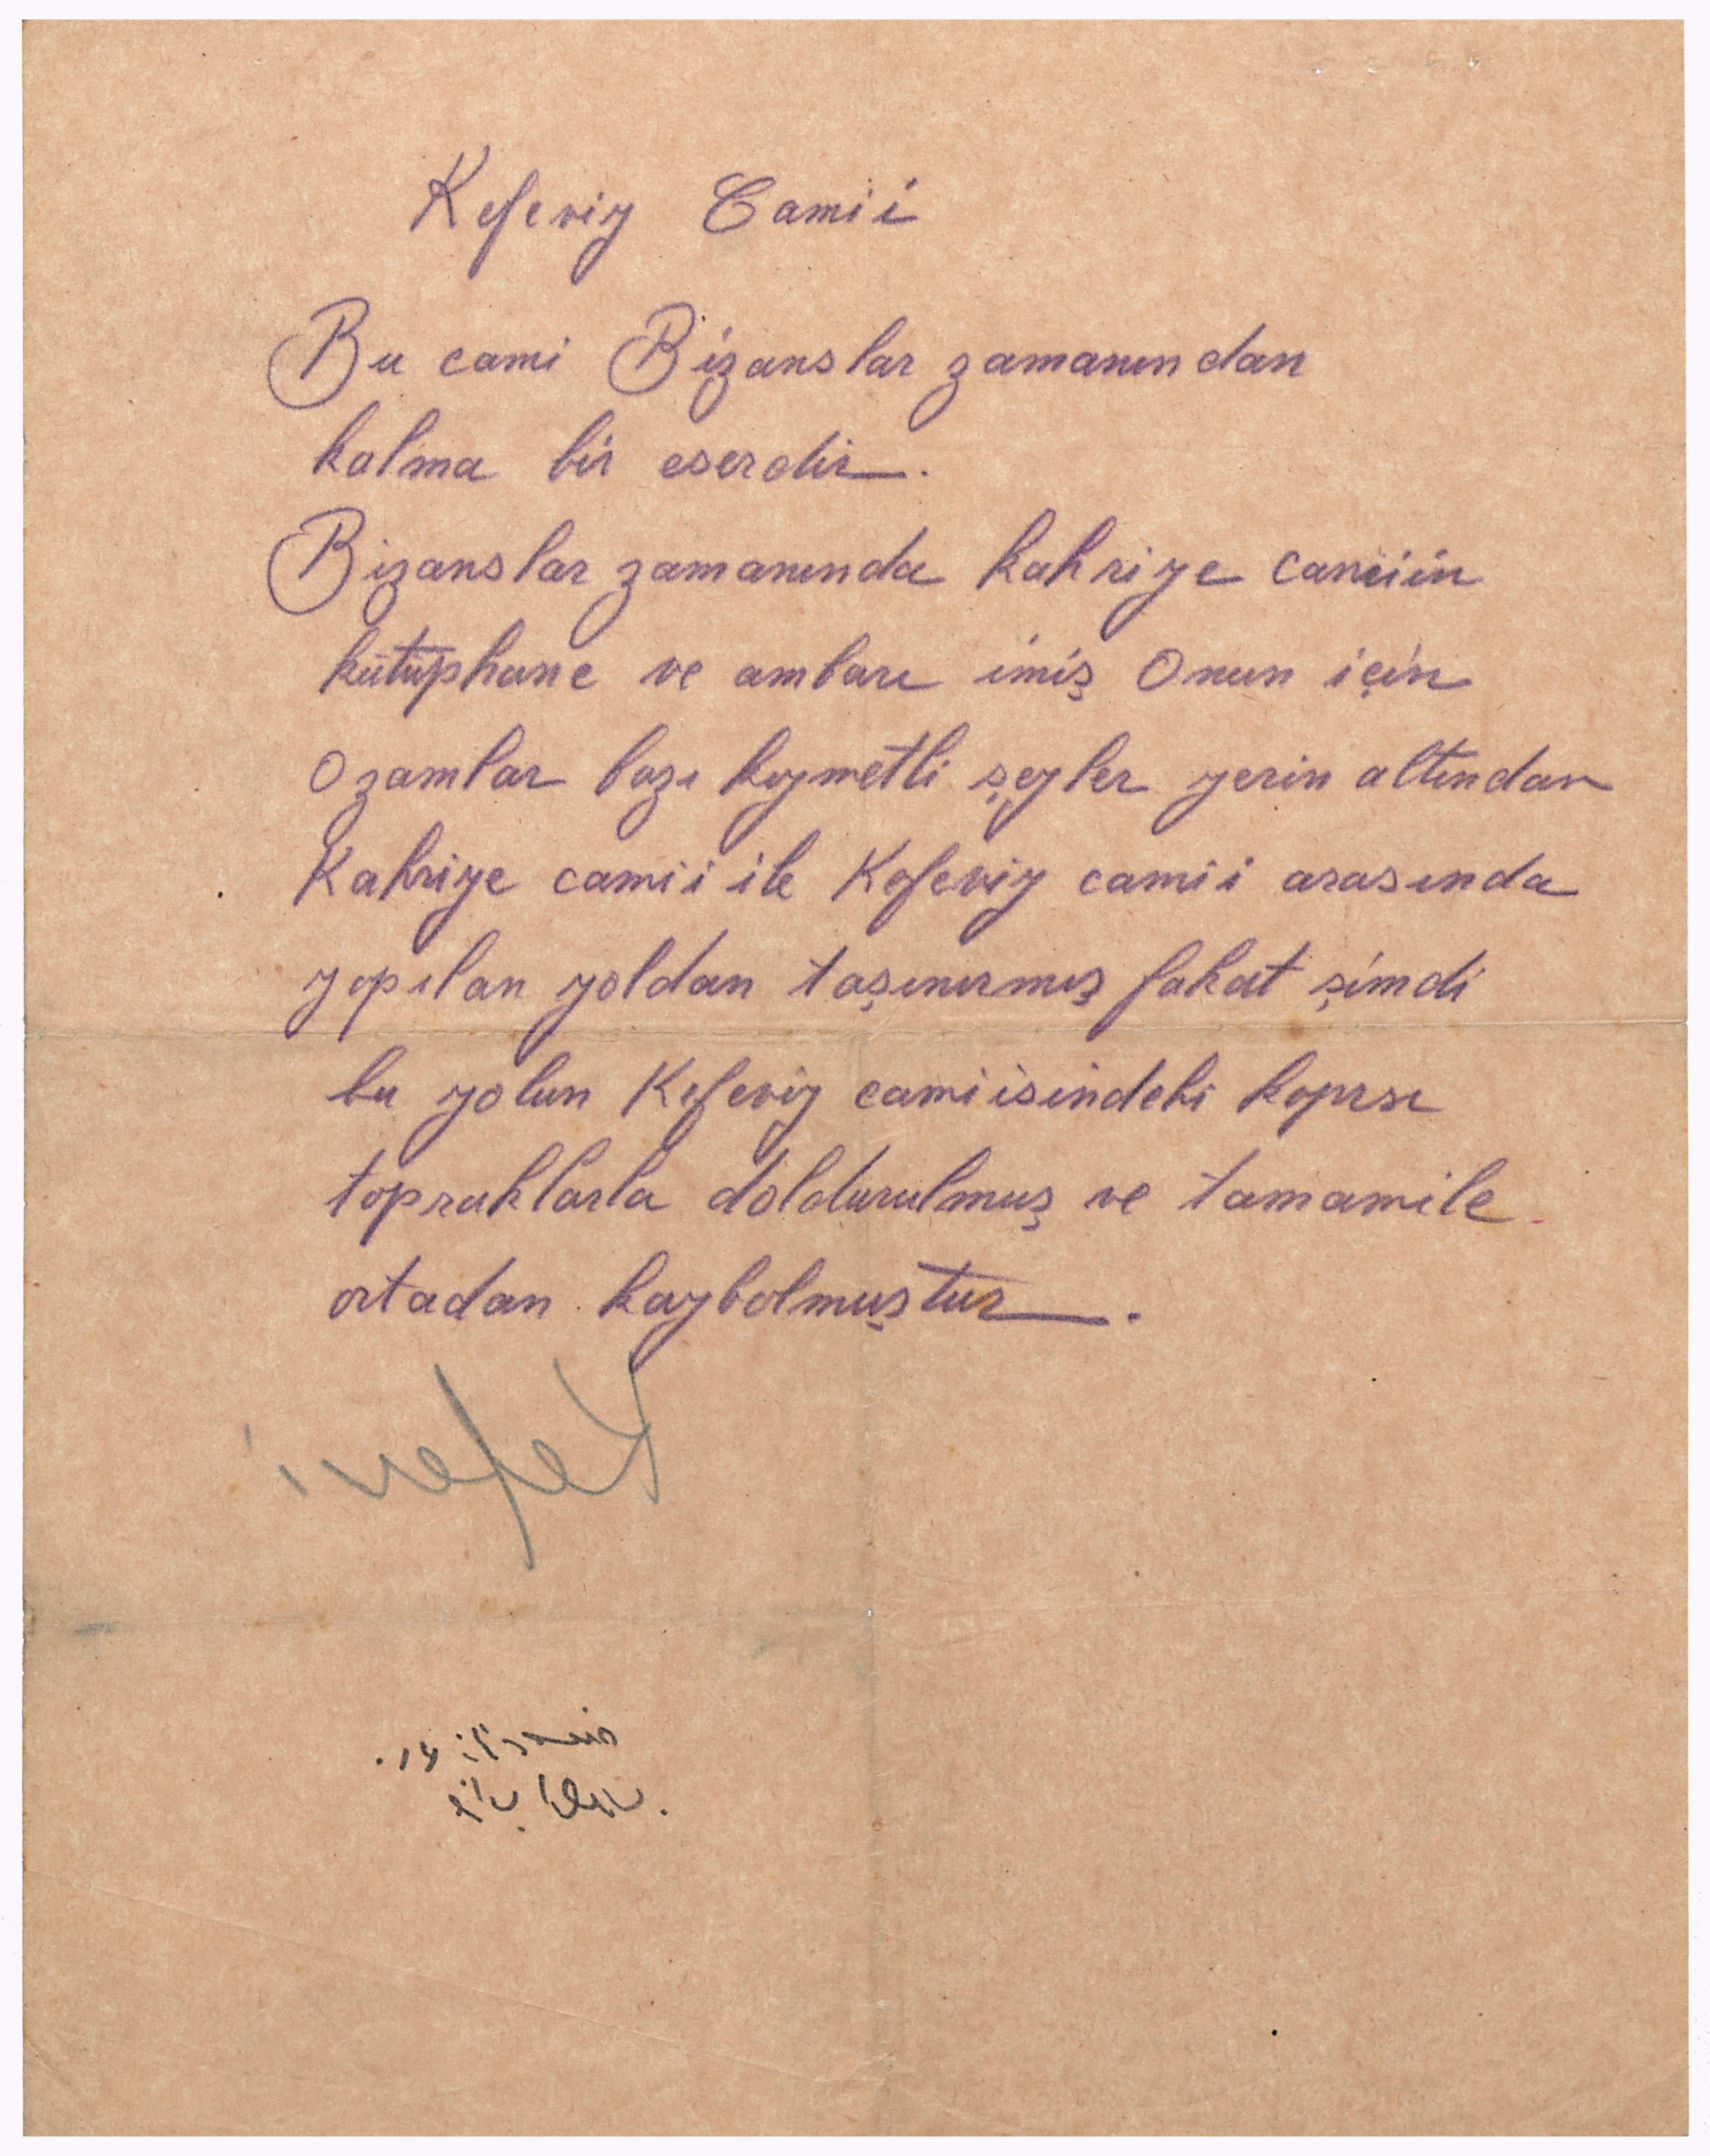 Kefeviy Camii
Bu cami Bizanslar zamanından
kalma bir eserdir.
Bizanslar zamanında kahriye camiin
kütüphane ve ambarı imiş Onun için
Ozamlar bazı kıymetli şeyler yerin altından
Kahriye camii ile Kefeviy camii arasında
yapılan yoldan taşınırmış fakat şimdi
bu yolun Kefeviy camiisindeki kapısı
topraklarla doldurulmuş ve tamamile
ortadan kaybolmuştur.
Kefevi